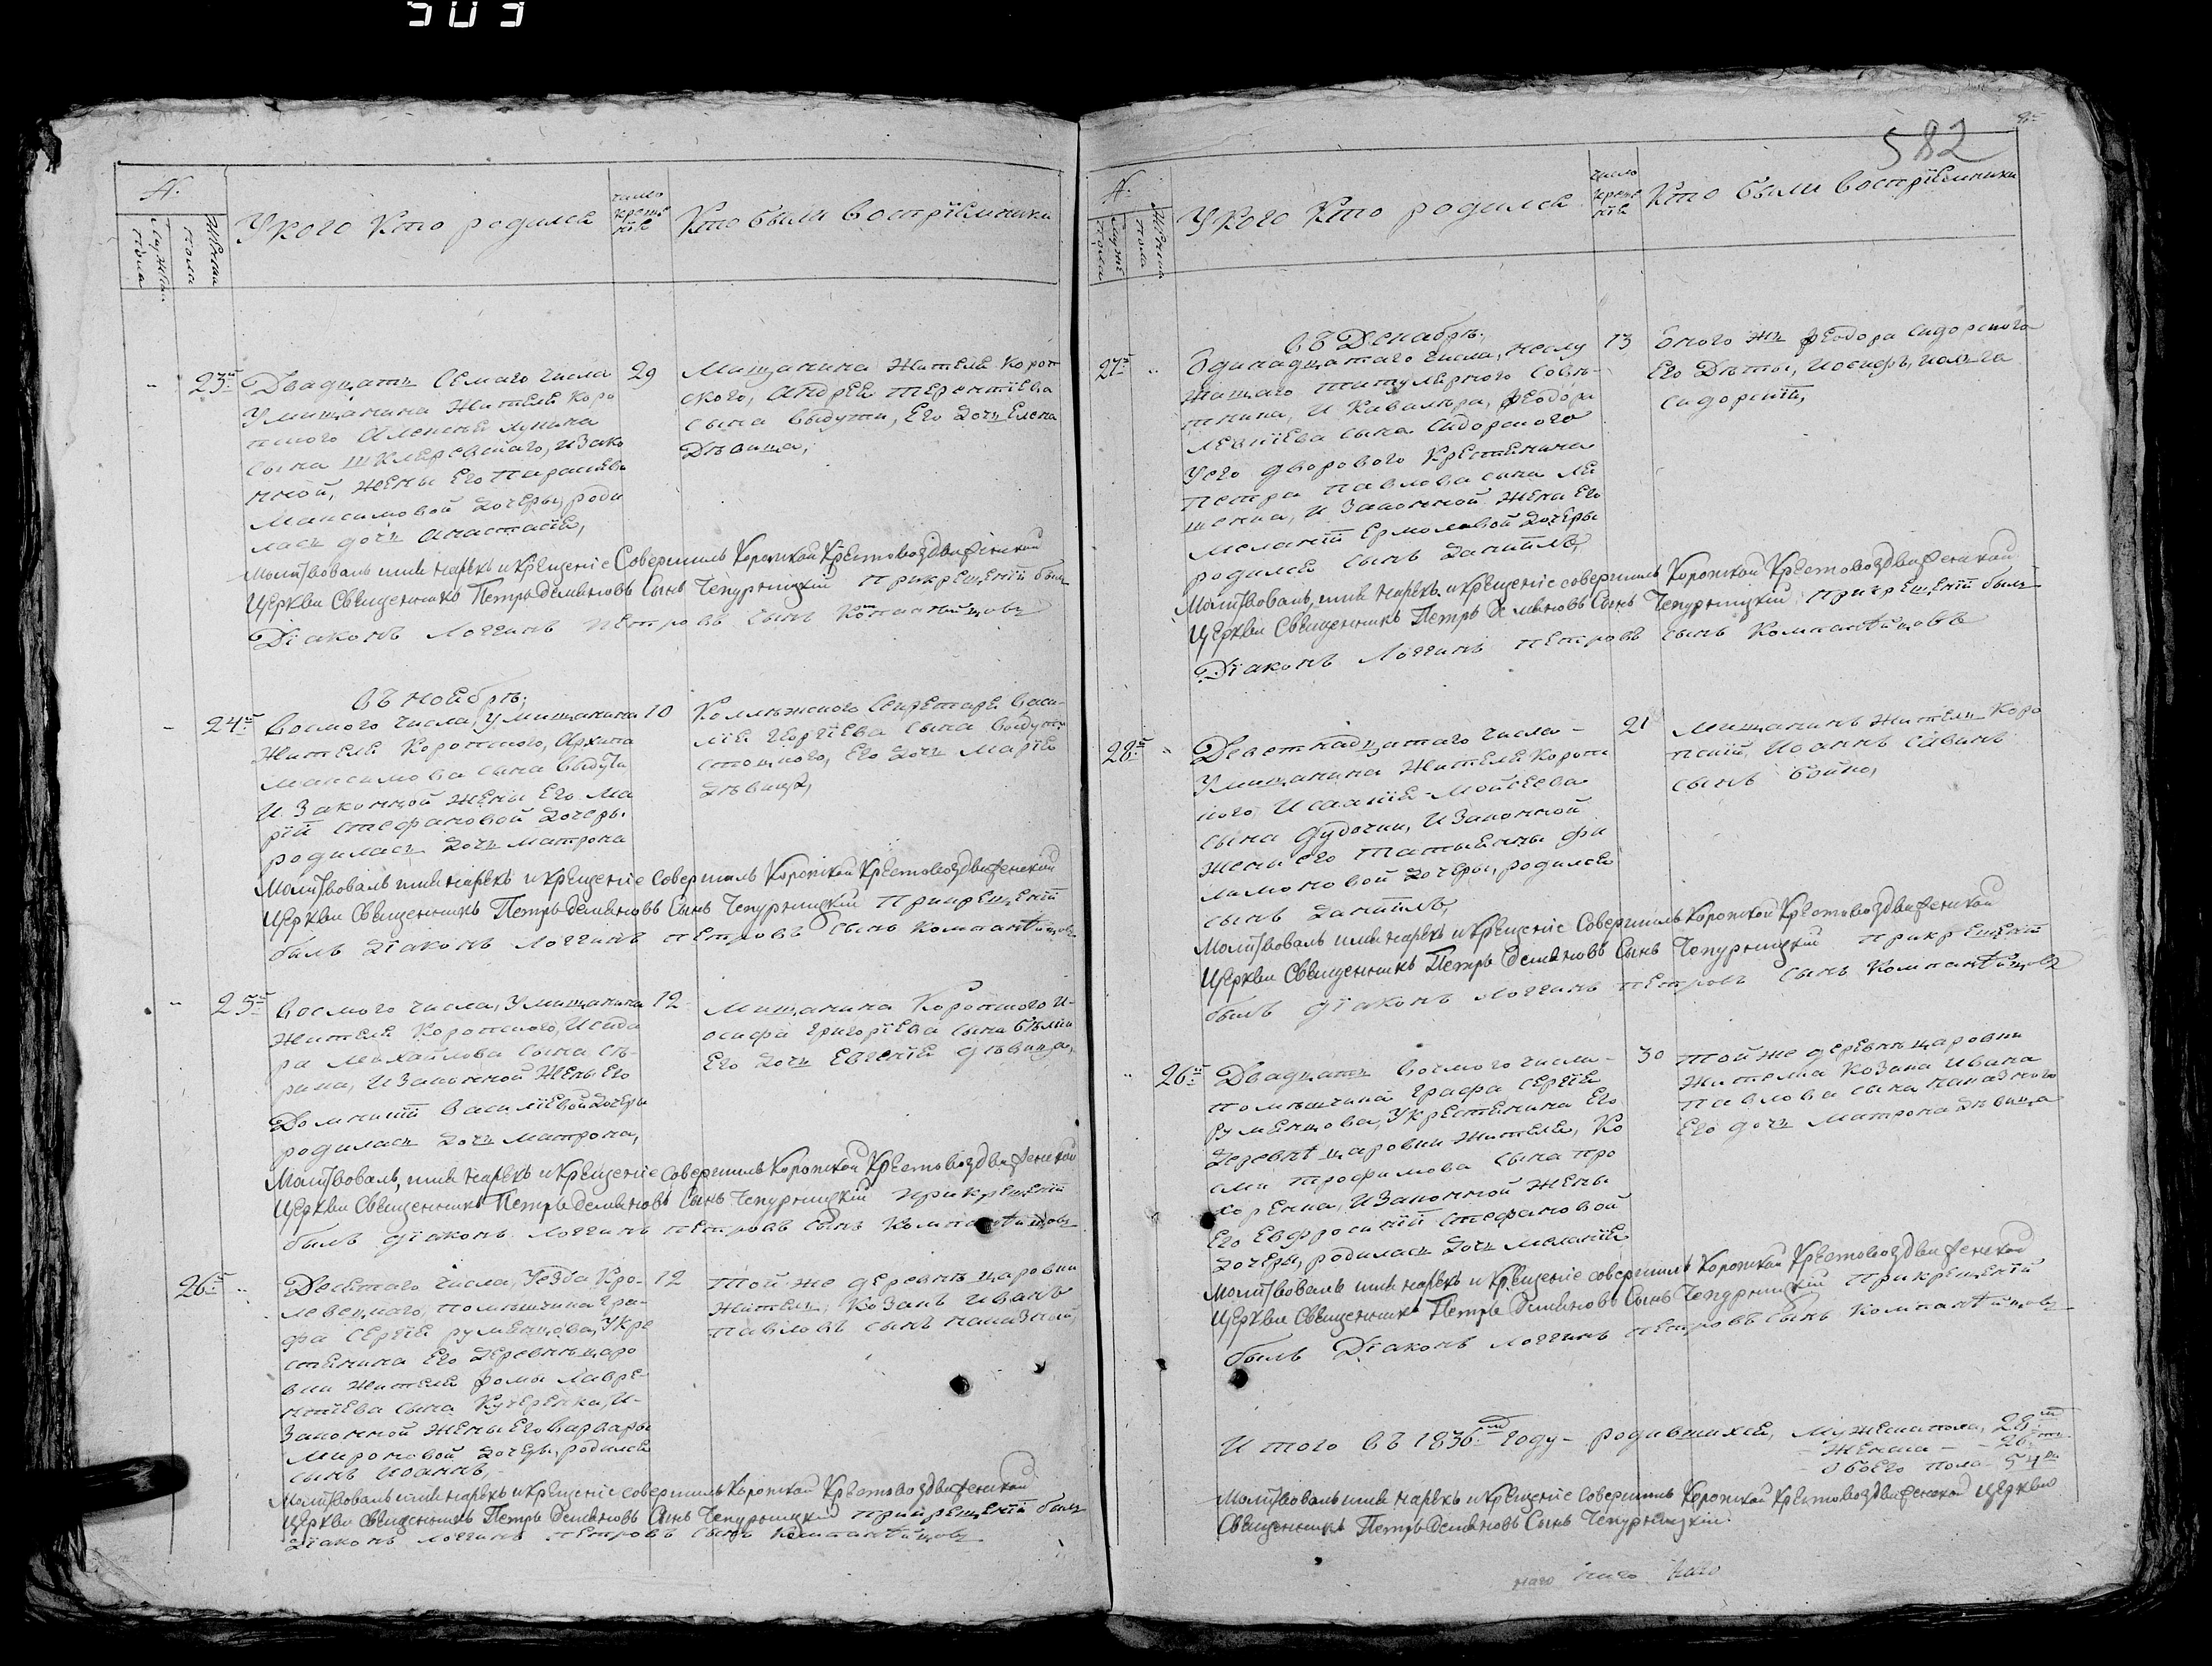 503
№.
Мужеска пола
Женска пола
У кого кто родился
число креще нія
Кто были воспріемники
23й
Двадцать семаго числа
У мищанина жителя Коро
пского Алексея Лукина
сына Шкляревского, и зако
нной, жены его Параскеви
Максимовой дочеры, роди
лась дочь Анастасія,
29
Мищанина жителя Короп
ского, Андрея Терентіева
сына Выдути, его дочь Елена
Дѣвица,
Молитвовалъ имя нарекъ и крещеніе совершилъ Коропской Крестовоздвиженской
церкви священникъ Петръ Демяновъ сынъ Чепурницкій при крещеніи былъ
Діаконъ Логгинъ Петровъ сынъ Компанѣйцовъ
въ ноябрѣ.
24й
Восмого числа, у мищанина
жителя Коропского, Архипа
Максимова сына Выдути
и законной жены его Ма
ріи Стефановой дочеры
родилась дочь Матрона
10
Коллѣжского секретаря Васи-
лія Георгіева сына Выдути
стоцкого, его дочь Марія
дѣвица,
Молитвовалъ имя нарекъ и крещеніе совершилъ Коропской Крестовоздвиженской
церкви священникъ Петръ Демяновъ сынъ Чепурницкій при крещеніи
былъ діаконъ Логгинъ Петровъ сынъ Компанѣйцовъ
25й
Восмого числа, у мищанина
жителя Коропского, Исидо
ра Михайлова сына Сѣ-
рика, и законной жены его
Домникіи Василіевой дочеры
родилась дочь Матрона,
12
Мищанина Коропского И-
осифа Григоріева сына
его дочь Евгенія дѣвица,
Молитвовалъ, имя нарекъ и крещеніе совершилъ Коропской Крестовоздвиженской
церкви священникъ Петръ Демяновъ сынъ Чепурницкій при крещеніи
былъ діаконъ Логгинъ Петровъ сынъ Компанѣйцовъ
26й
Десятаго числа, уезда Кро-
левецкаго, помѣщика гра-
фа Сергія Румянцова, у кре
стянина его деревнѣ Царо
вки жителя Фомы Лавре-
нтіева сына Кучеренка, и-
законной жены его Варвары
Мироновой дочеры, родился
сынъ Иоаннъ,
12
Той же деревнѣ Царовки
житель, козакъ Иванъ
Павловъ сынъ Наказной,
Молитвовалъ имя нарекъ и крещеніе совершилъ Коропской Крестовоздвиженской
церкви священникъ Петръ Демяновъ сынъ Чепурницкій при крещеніи былъ
діаконъ Логгинъ Петровъ сынъ Компанѣйцовъ
582
№.
Мужеск пола
Женска пола
У кого кто родился
число креще нія
Кто были воспріемники
въ Декабрѣ.
27й
Одинадцатаго числа, неслу
жащаго титулярного совѣ-
тника, и кавалера, Феодора
Левкіева сына Сидорского
у его дворового крестянина
Петра Павлова сына Ле
щенка, и законной жена его
Меланіи Ермоловой дочеры
родился сынъ Даніилъ,
13
Оного жъ Феодора Сидорского
его дѣти, Иосифъ,
Сидорскіи,
Молитвовалъ, имя нарекъ и крещеніе совершилъ Коропской Крестовоздвиженской
церкви священникъ Петръ Демяновъ сынъ Чепурницкій при крещеніи былъ
Діаконъ Логгинъ Петровъ сынъ Компанѣйцовъ
28й
Деветнадцатаго числа-
У мищанина жителя Коропс
кого, Исаакія Мойсеева
сына Дудочки, и законной
жены его Татьянны Фи
лимоновой дочеры, родился
сынъ Даніилъ,
21
Мищанинъ житель Коро
пскій, Иоаннъ Савинъ
сынъ Бойко,
Молитвовалъ имя нарекъ и крещеніе совершилъ Коропской Крестовоздвиженской
церкви священникъ Петръ Демяновъ сынъ Чепурницкій при крещеніи
былъ діаконъ Логгинъ Петровъ сынъ Компанѣйцовъ
26й
Двадцать восмого числа-
помѣщика графа Сергія
Румянцова, у крестянина его
деревнѣ Царовки жителя, Ко
сми Трофимова сына Про
хоренка, и законной жены
его Евфросиніи Стефановой
дочеры, родилась дочь Меланія
30
Той же деревнѣ Царовки
жителя козака Ивана
Павлова сына Наказного
его дочь Матрона дѣвица
Молитвовалъ имя нарекъ и крещеніе совершилъ Коропской Крестовоздвиженской
церкви священникъ Петръ Демяновъ сынъ Чепурницкій при крещеніи
былъ Діаконъ Логгинъ Петровъ сынъ Компанѣйцовъ
И того въ 1836м году- родившихся, мужеска пола, 28м
- женска - - 26
- обоего пола - 54
Молитвовалъ имя нарекъ и крещеніе совершилъ Коропской Крестовоздвиженской церкви
священникъ Петръ Демяновъ сынъ Чепурницкій